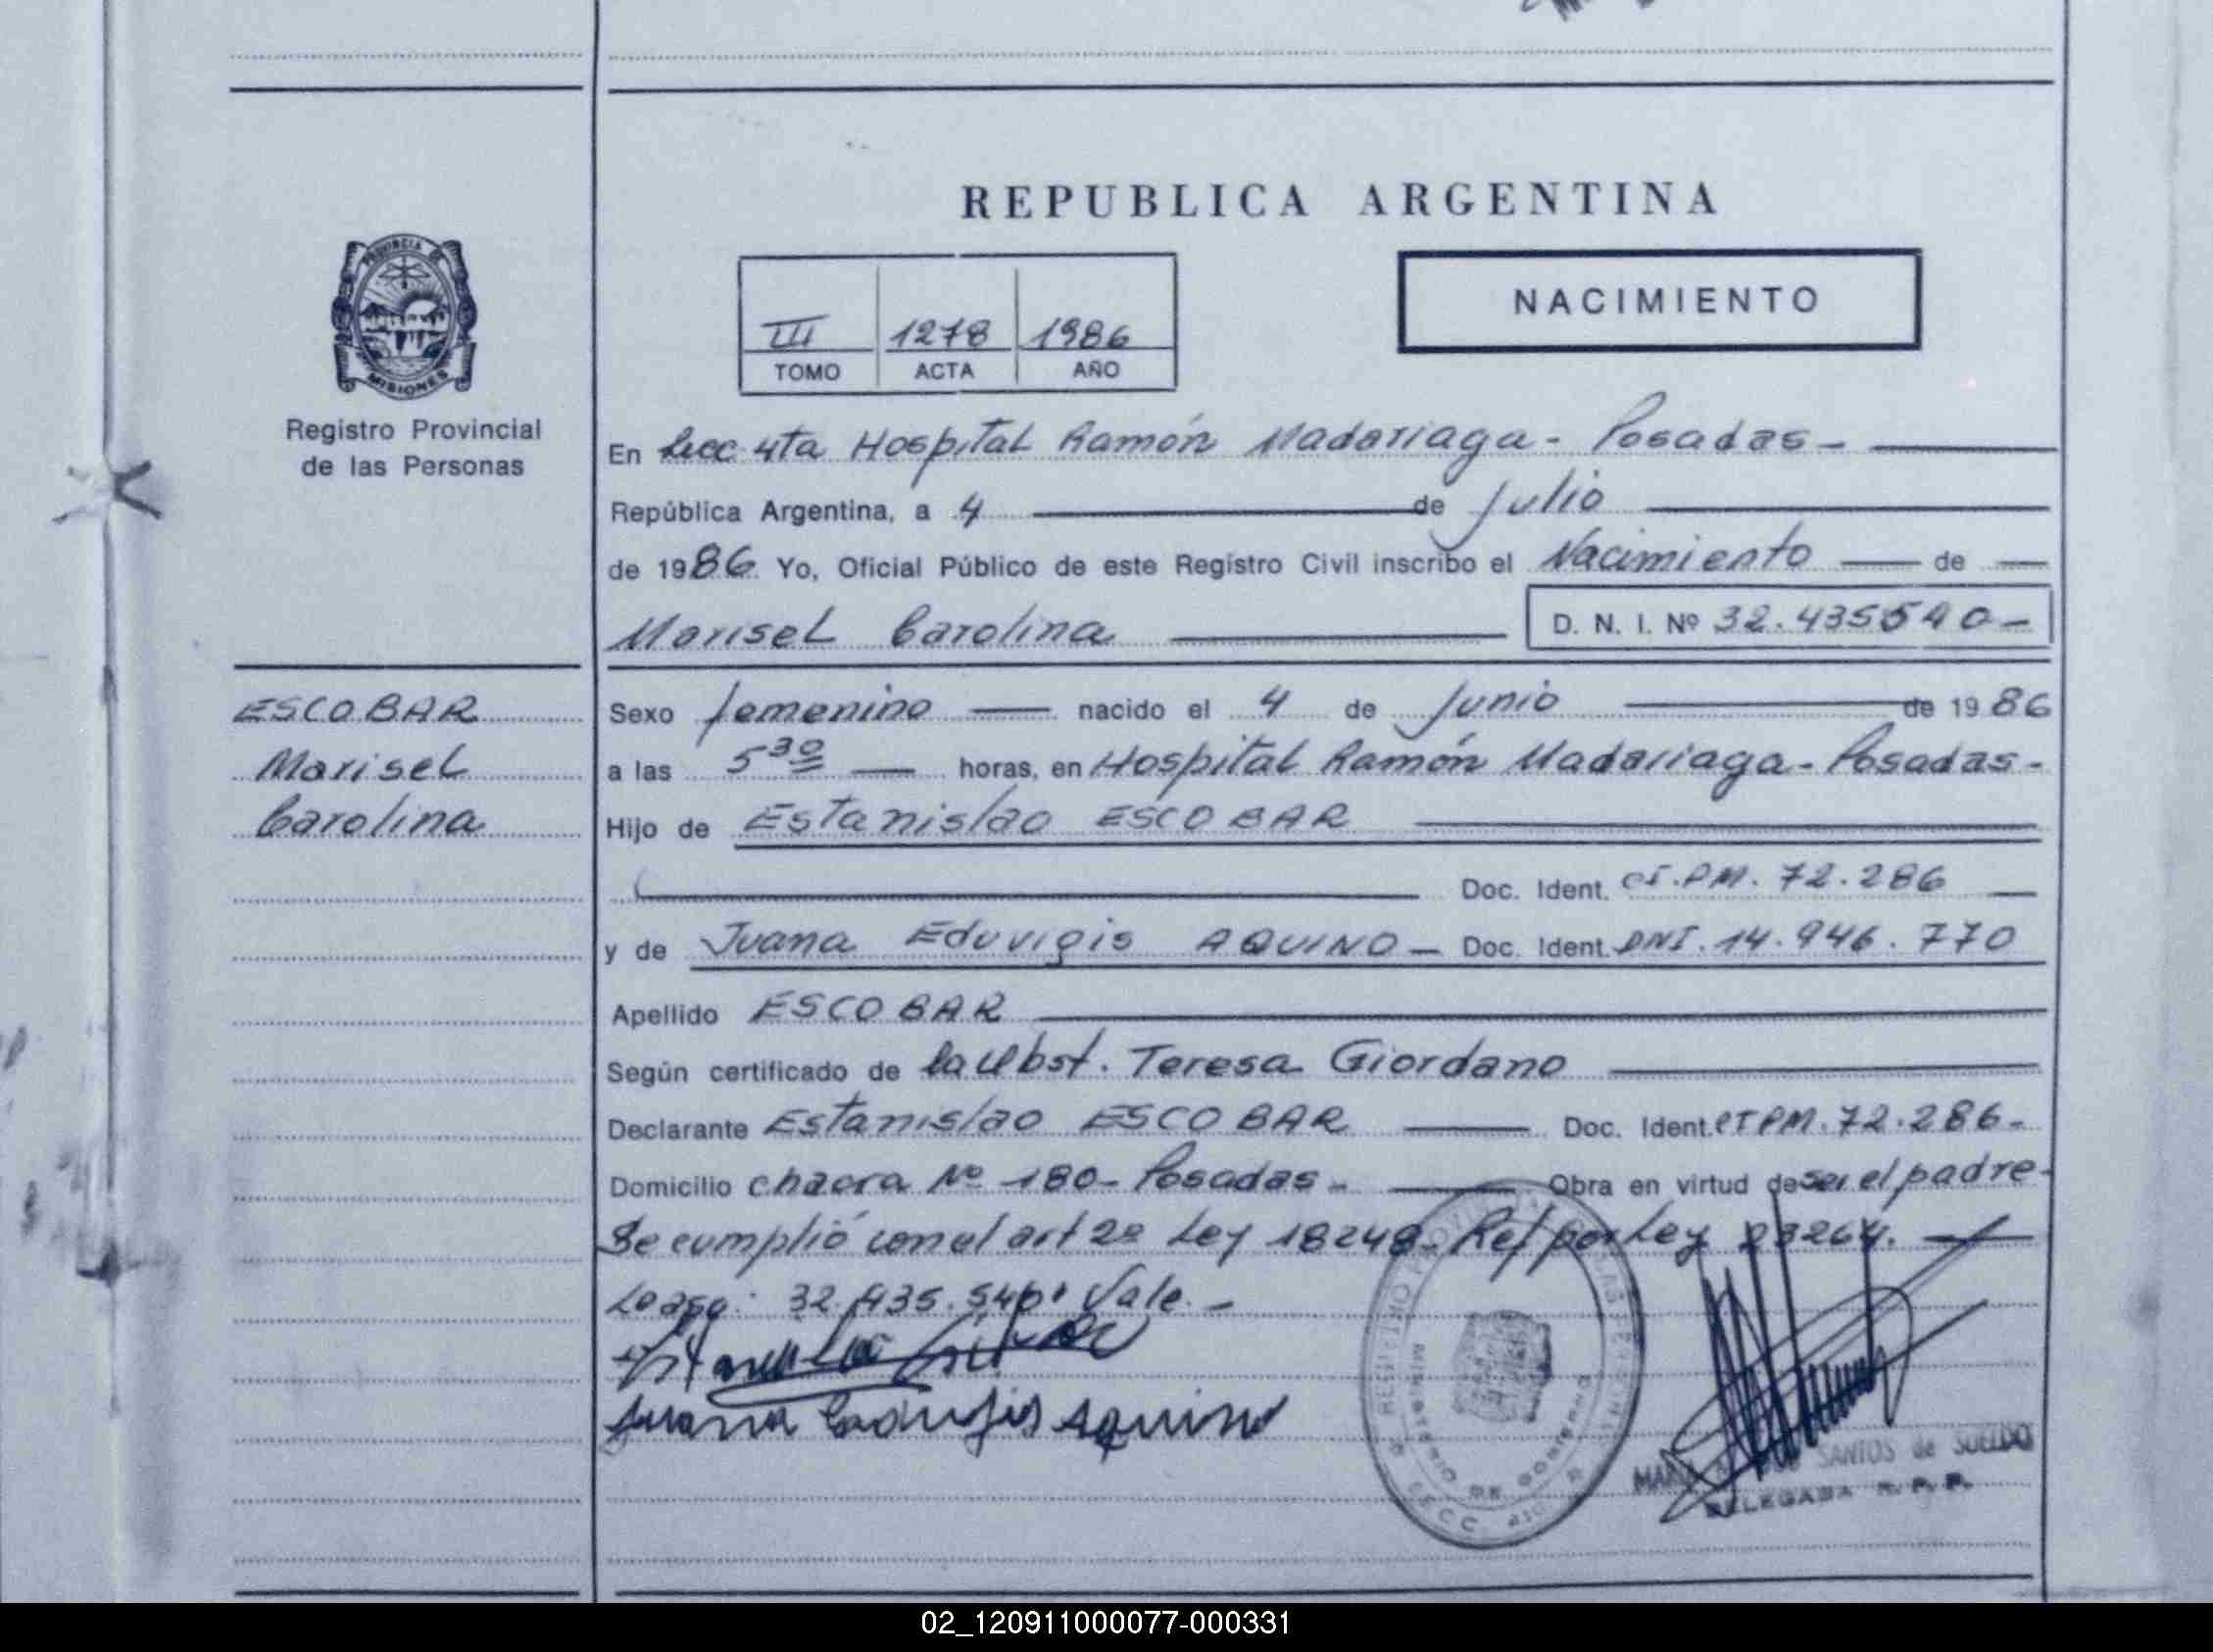 REPUBLICA ARGENTINA
PROVINCIA DE
MISIONES
Registro Provincial
de las Personas
III 1278 1986
TOMO ACTA AÑO
NACIMIENTO
En Secc 4ta Hospital Ramón Madariaga - Posadas -
República Argentina, a 4 de Julio
de 1986. Yo, Oficial Público de este Registro Civil inscribo el Nacimiento de
Marisel Carolina D. N. I. Nº 32.435540-
ESCOBAR
Marisel
Carolina
Sexo femenino nacido el 4 de Junio de 1986
a las 5 30 horas, en Hospital Ramón Madariaga - Posadas -
Hijo de Estanislao ESCOBAR
Doc. Ident. CI.PM. 72.286
y de Juana Eduvigis AQUINO - Doc. Ident. DNI. 14.946.770
Apellido ESCOBAR
Según certificado de la Obst. Teresa Giordano
Declarante Estanislao ESCOBAR Doc. Ident. CI PM. 72.286-
Domicilio chacra Nº 180 - Posadas - Obra en virtud de ser el padre-
Se cumplió con el art 2º Ley 18248 - Ref por Ley 23264.
Lease: 32.435.540 Vale. -
Juana Eduvigis Aquino
REGISTRO
MINISTERIO DE GOBIERNO
SECC.
SANTOS de SUELDO
DELEGADA R. P. P.
02_120911000077-000331